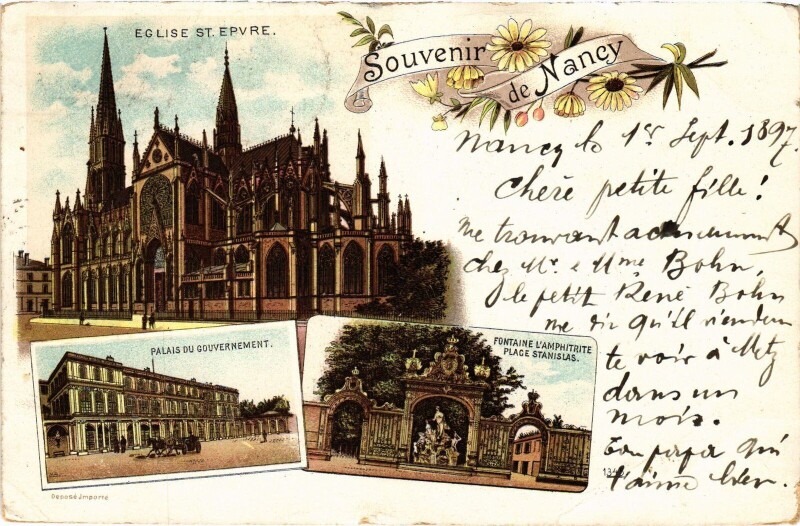 EGLISE ST. EPVRE.
Souvenir
de Nancy
Nancy le 1er Sept. 1897.
Chère petite fille!
Me trouvant actuellement
chez Mr. & Mme Bohn,
le petit René Bohn
me dit qu'il viendra
te voir à Metz
dans un
mois.
Ton papa qui
t'aime bien.
PALAIS DU GOUVERNEMENT.
FONTAINE L'AMPHITRITE
PLACE STANISLAS.
Deposé Importé